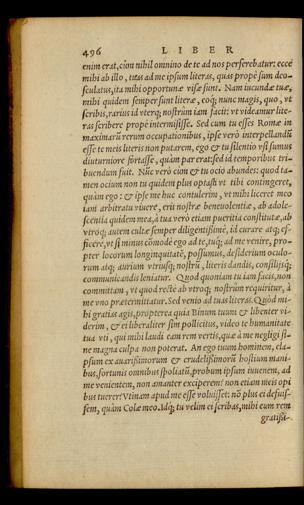 496 LIBER
enim erat, cùm nihil omnino de te ad nos perferebatur: ecce
mihi ab illo, tuas ad me ipsum literas, quas propè sum deo-
sculatus, ita mihi opportunæ visæ sunt. Nam iucundæ tuæ,
mihi quidem semper sunt literæ, eoq; nunc magis, quo, vt
scribis, rarius id vterq; nostrûm iam facit: vt videamur lite-
ras scribere propè intermisisse. Sed cum tu esses Romæ in
maximarũ rerum occupationibus, ipse verò interpellandũ
esse te meis literis non putarem, ego & tu silentio vsi sumus
diuturniore fortasse, quàm par erat: sed id temporibus tri-
buendum fuit. Nũc verò cùm & tu ocio abundes: quod ta-
men ocium non tu quidem plus optasti vt tibi contingeret,
quàm ego: & ipse me huc contulerim, vt mihi liceret meo
iam arbitratu viuere, erit nostræ beneuolentiæ, ab adole-
scentia quidem mea, à tua verò etiam pueritia constitutæ, ab
vtroq; autem cultæ semper diligentissimè, id curare atq; ef-
ficere, vt si minus cōmodè ego ad te, tuq; ad me venire, pro-
pter locorum longinquitatē, possumus, desiderium oculo-
rum atq; aurium vtriusq; nostrũ, literis dandis, consiliisq;
communicandis leniatur. Quod quoniam tu iam facis, non
committam, vt quod rectè ab vtroq; nostrũm requiritur, à
me vno prætermittatur. Sed venio ad tuas literas. Quòd mi-
hi gratias agis, propterea quia Binum tuum & libenter vi-
derim, & ei liberaliter sim pollicitus, video te humanitate
tua vti, qui mihi laudi eam rem vertis, quæ à me negligi si-
ne magna culpa non poterat. An ego tuum hominem, ela-
psum ex auarissimorum & crudelissimorũ hostium mani-
bus, fortunis omnibus spoliatũ, probum ipsum iuuenem, ad
me venientem, non amanter exciperem? non etiam meis opi
bus tuerer? Vtinam apud me esse voluisset: nō plus ei defuis-
sem, quàm Colæ meo. Idq; tu velim ei scribas, mihi eum rem
gratissi-